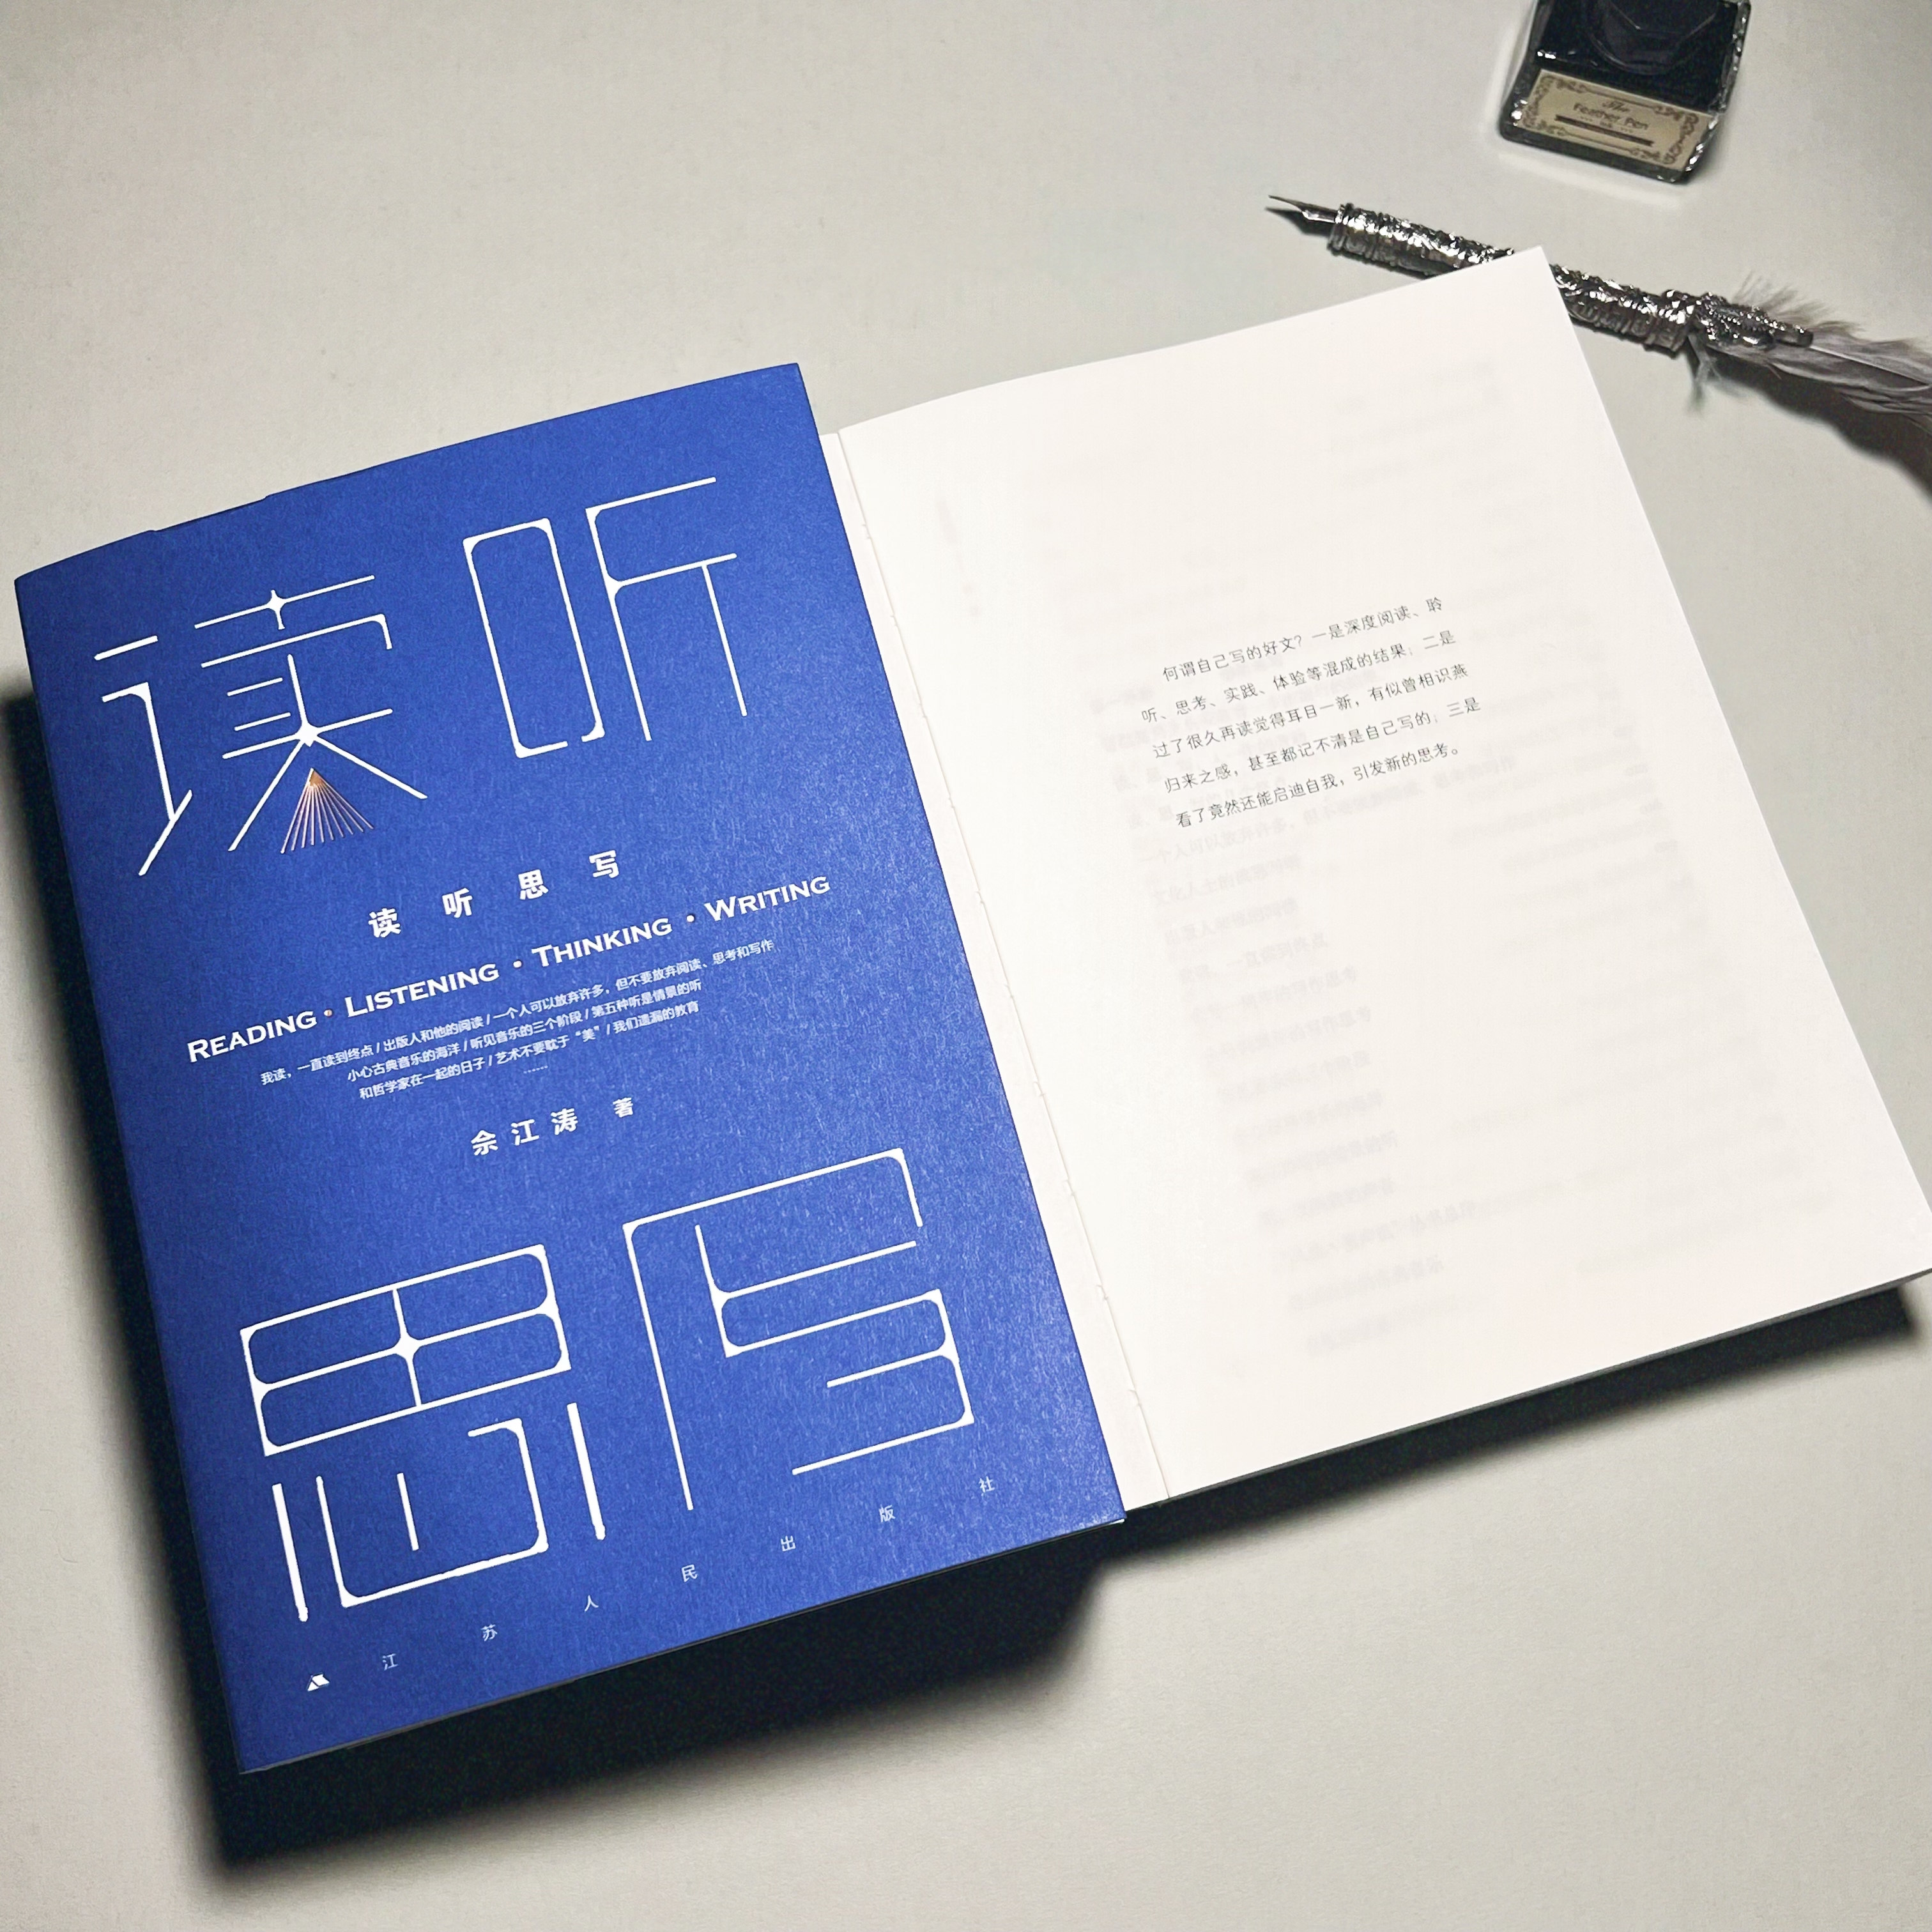 读听
读听思写
READING · LISTENING · THINKING · WRITING
我读，一直读到终点 / 出版人和他的阅读 / 一个人可以放弃许多，但不要放弃阅读、思考和写作
小心古典音乐的海洋 / 听见音乐的三个阶段 / 第五种听是情景的听
和哲学家在一起的日子 / 艺术不要耽于“美” / 我们遗漏的教育
……
佘江涛 著
思写
江苏人民出版社
何谓自己写的好文？一是深度阅读、聆
听、思考、实践、体验等混成的结果；二是
过了很久再读觉得耳目一新，有似曾相识燕
归来之感，甚至都记不清是自己写的；三是
看了竟然还能启迪自我，引发新的思考。
The
Feather Pen
Ink